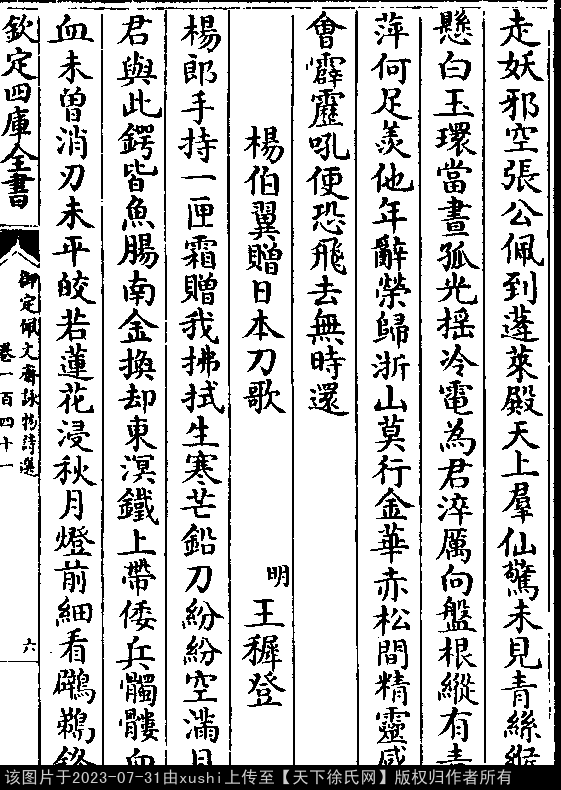 走妖邪空張公佩到蓬萊殿天上羣仙驚未見青絲緱
懸白玉環當晝孤光揺冷電為君淬厲向盤根縱有青
萍何足羡他年辭榮歸浙山莫行金華赤松間精靈感
㑹霹靂吼便恐飛去無時還
楊伯翼贈日本刀歌 明 王穉登
楊郎手持一匣霜贈我拂拭生寒芒鉛刀紛紛空滿目
君與此鍔皆魚腸南金換却東溟鐵上帶倭兵髑髏血
血未曽消刃未平皎若蓮花浸秋月燈前細看鷿鵜鋒
欽定四庫全書
御定佩文齋詠物詩選
卷一百四十一
六
该图片于2023-07-31由xushi上传至【天下徐氏网】版权归作者所有